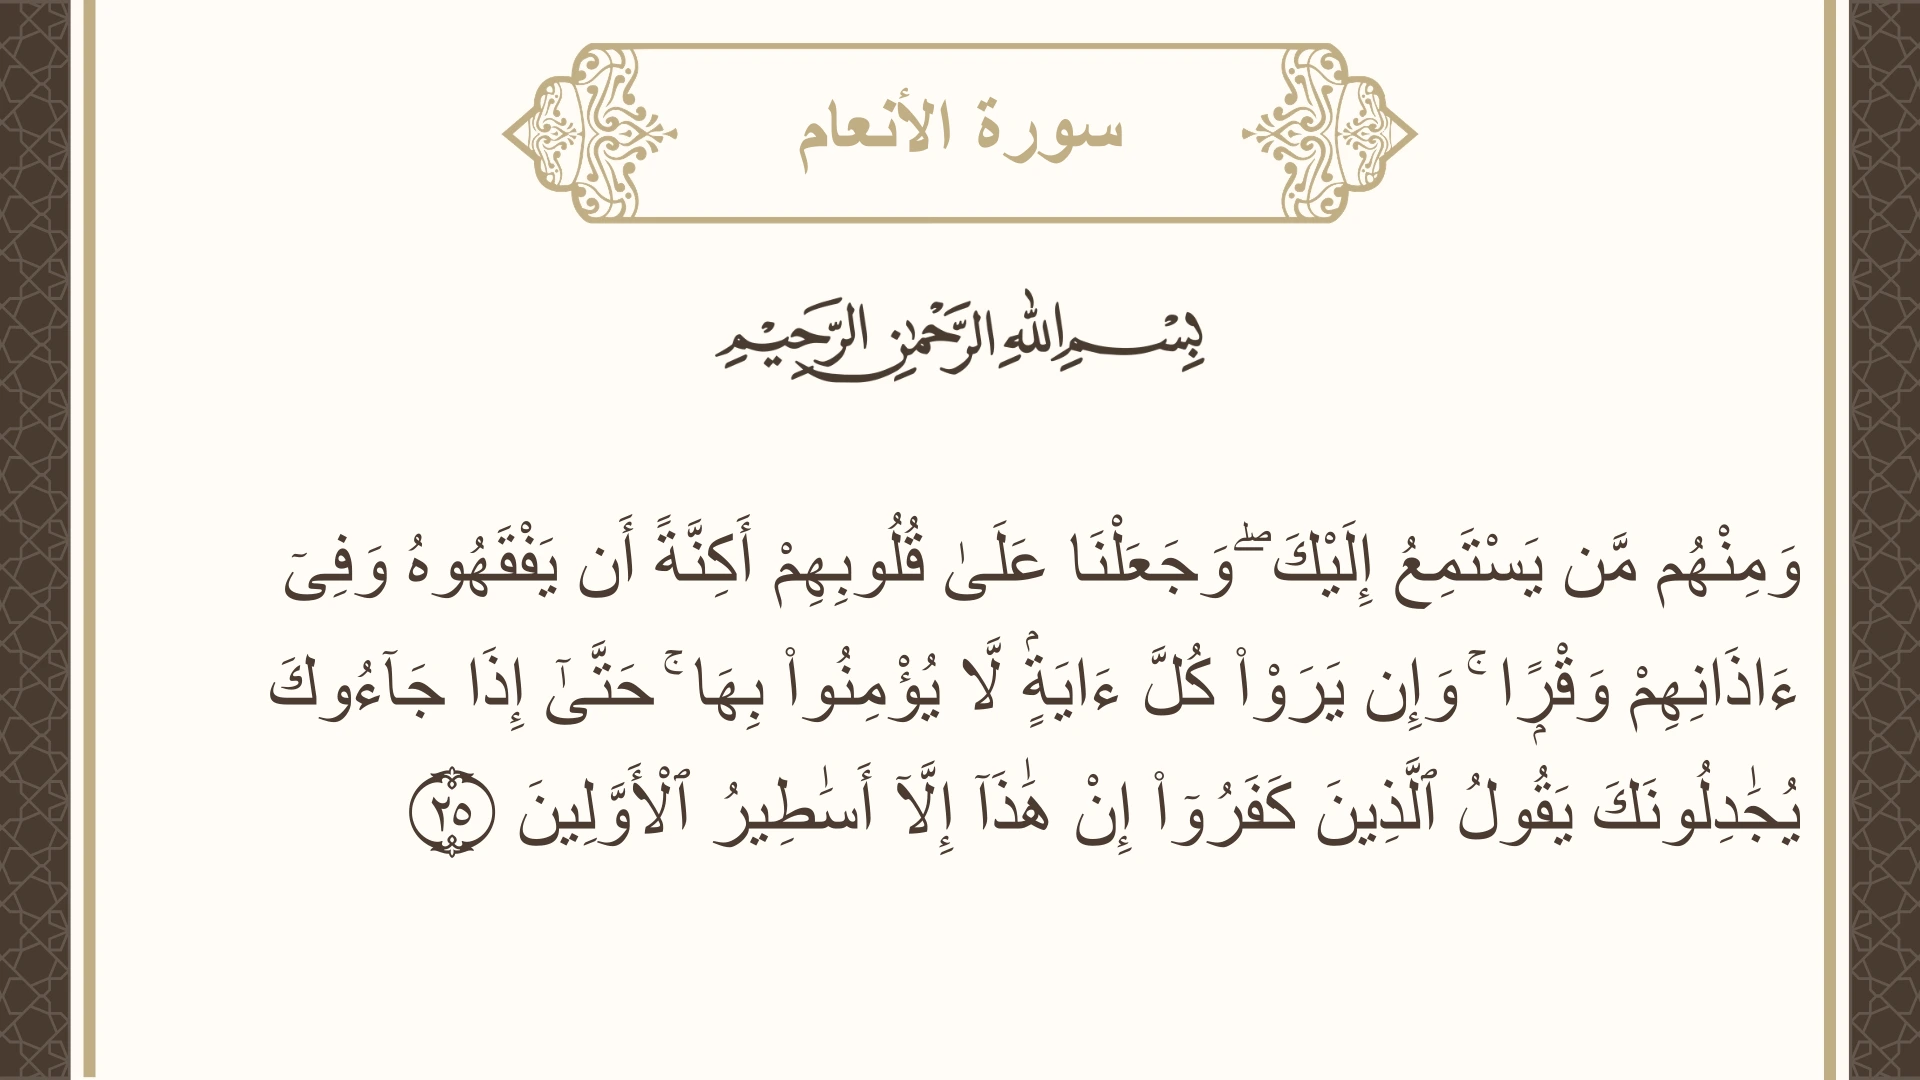 سورة الأنعام
بِسْمِ اللهِ الرَّحْمٰنِ الرَّحِيْمِ
وَمِنْهُم مَّن يَسْتَمِعُ إِلَيْكَ ۖ وَجَعَلْنَا عَلَىٰ قُلُوبِهِمْ أَكِنَّةً أَن يَفْقَهُوهُ وَفِىٓ
ءَاذَانِهِمْ وَقْرًۭا ۚ وَإِن يَرَوْا۟ كُلَّ ءَايَةٍۢ لَّا يُؤْمِنُوا۟ بِهَا ۚ حَتَّىٰٓ إِذَا جَآءُوكَ
يُجَٰدِلُونَكَ يَقُولُ ٱلَّذِينَ كَفَرُوٓا۟ إِنْ هَٰذَآ إِلَّآ أَسَٰطِيرُ ٱلْأَوَّلِينَ ٢٥